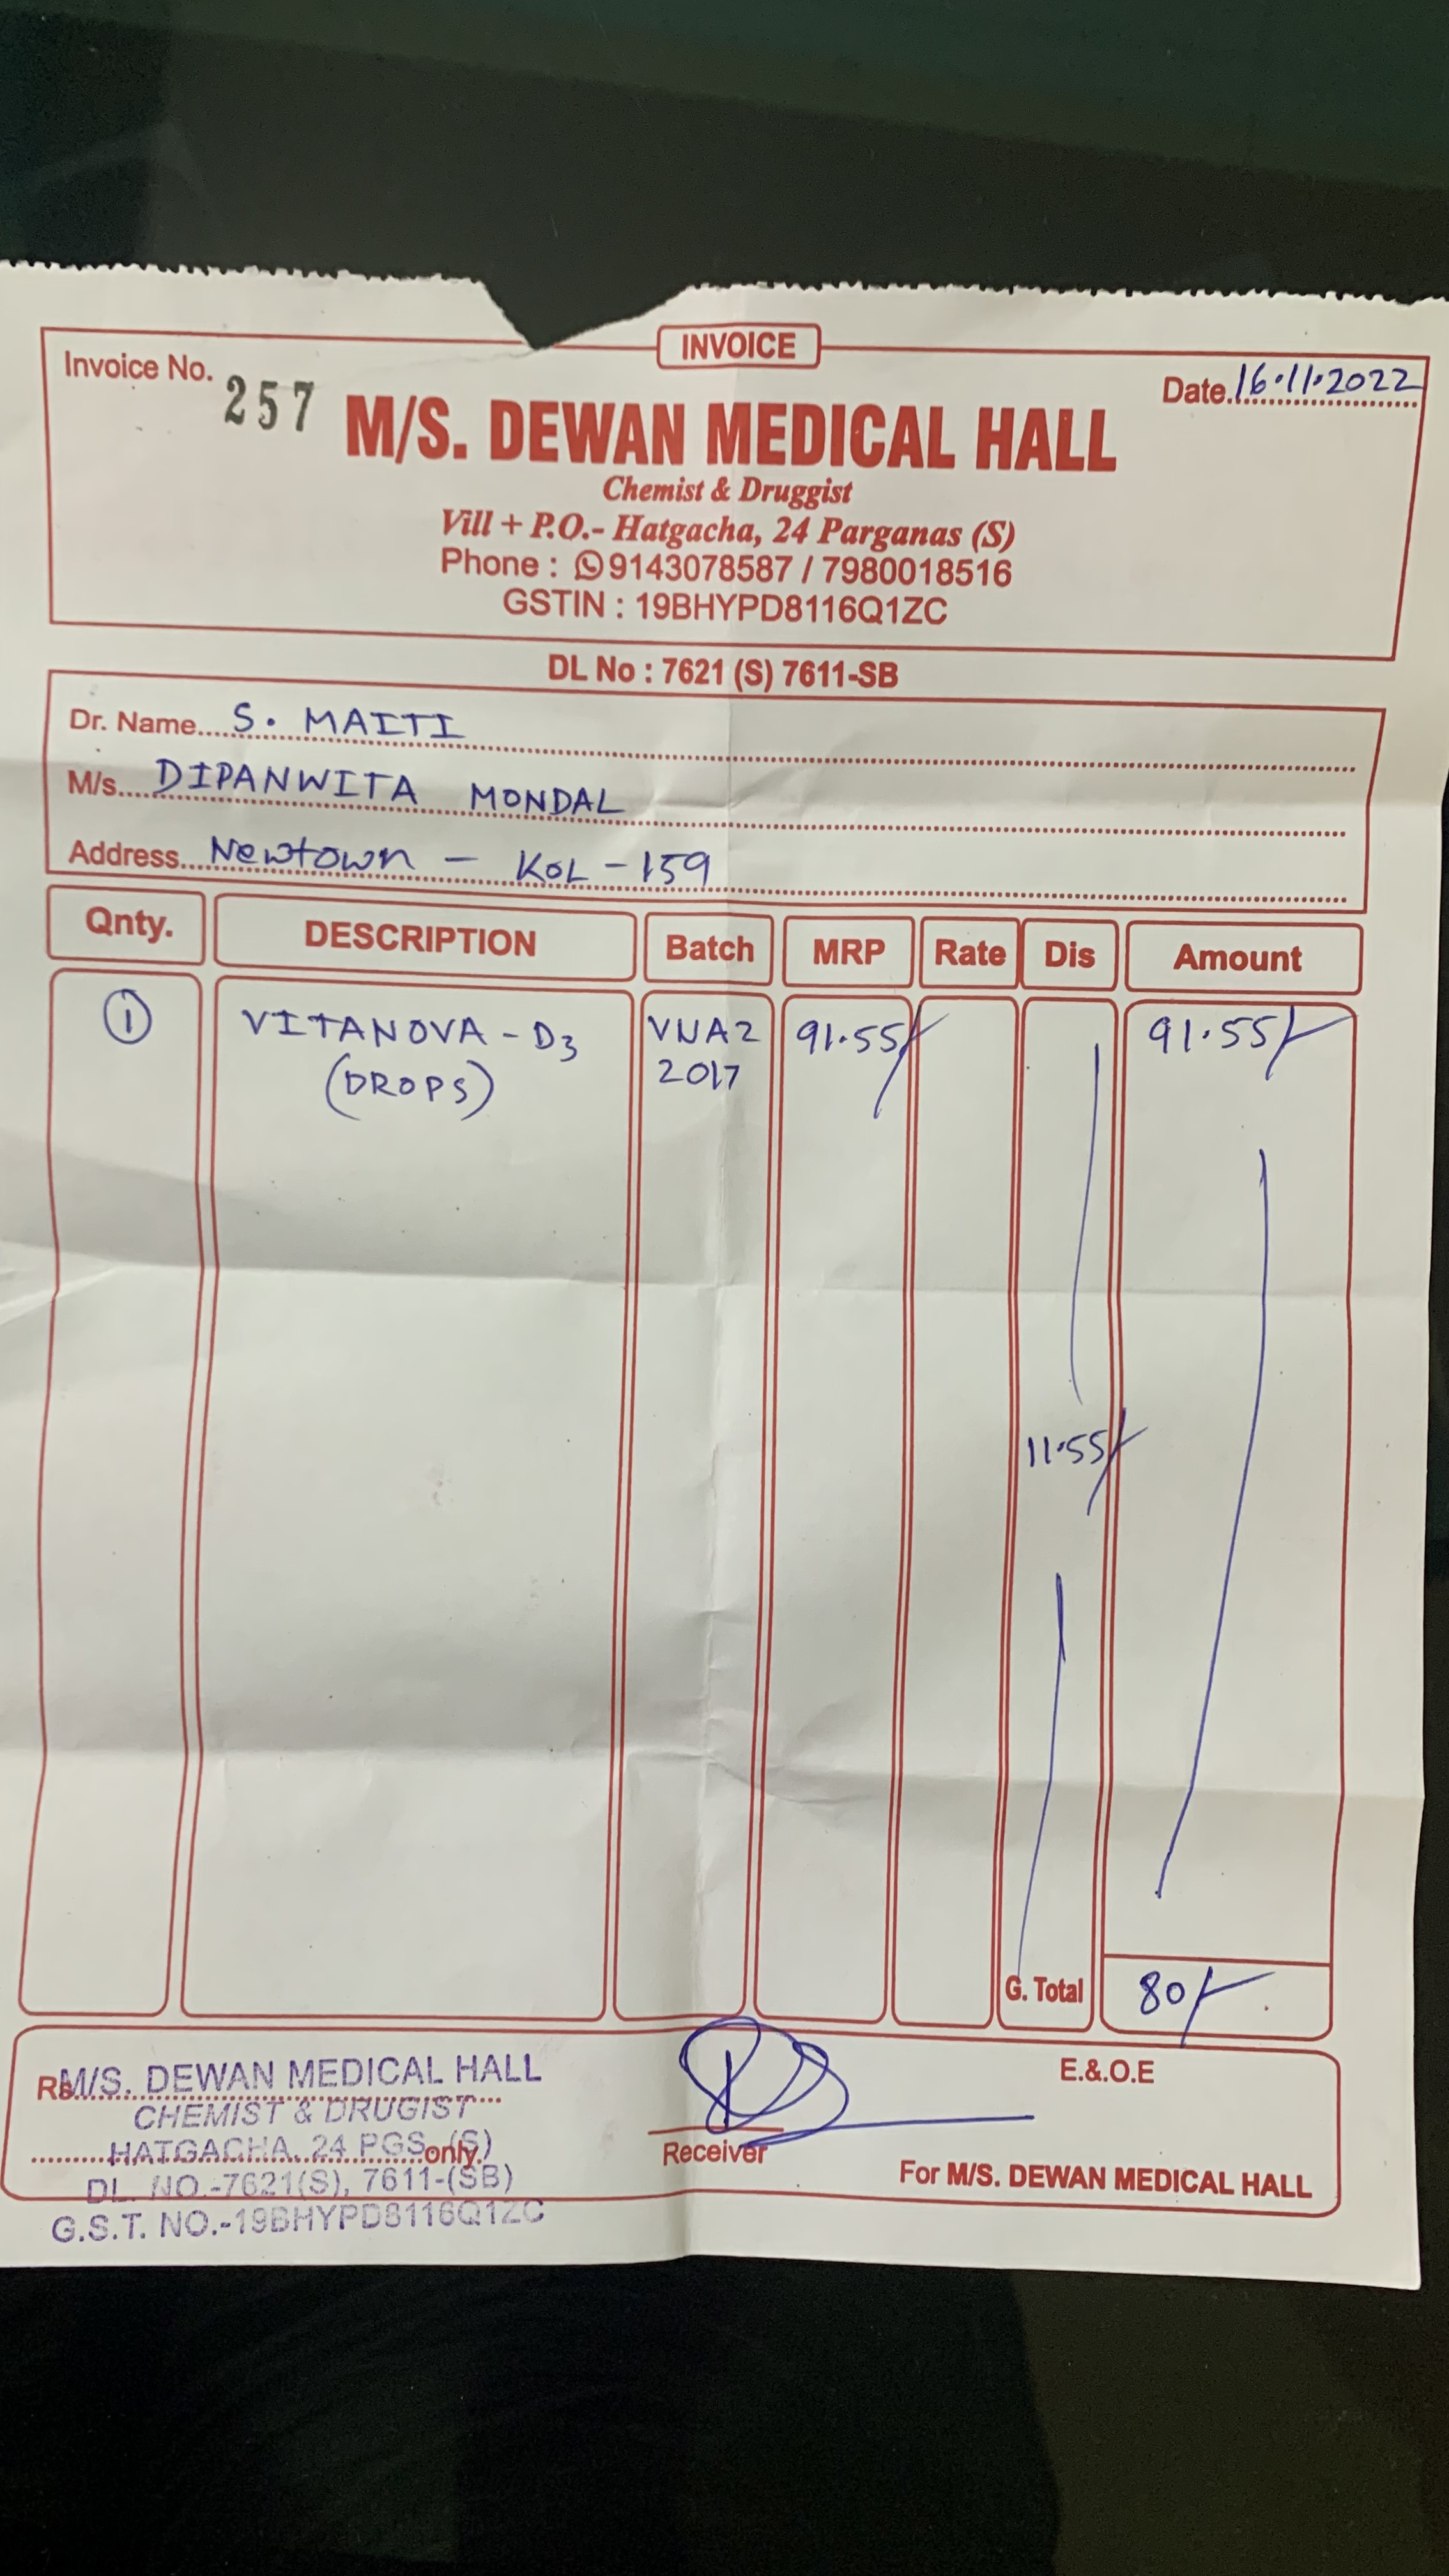 INVOICE
Invoice No. 257
Date 16.11.2022
M/S. DEWAN MEDICAL HALL
Chemist & Druggist
Vill + P.O.- Hatgacha, 24 Parganas (S)
Phone : 9143078587 / 7980018516
GSTIN : 19BHYPD8116Q1ZC
DL No : 7621 (S) 7611-SB
Dr. Name S. MAITI
M/s. DIPANWITA MONDAL
Address Newtown - KOL - 159
Qnty. DESCRIPTION Batch MRP Rate Dis Amount
1 VITANOVA - D3 VNA2 91.55/- 91.55/-
(DROPS) 2017
11.55/-
G. Total 80/-
Rs. M/S. DEWAN MEDICAL HALL
CHEMIST & DRUGIST
HATGACHA, 24 PGS (S)
only.
DL. NO.-7621(S), 7611-(SB)
G.S.T. NO.-19BHYPD8116Q1ZC
Receiver
E.&.O.E
For M/S. DEWAN MEDICAL HALL